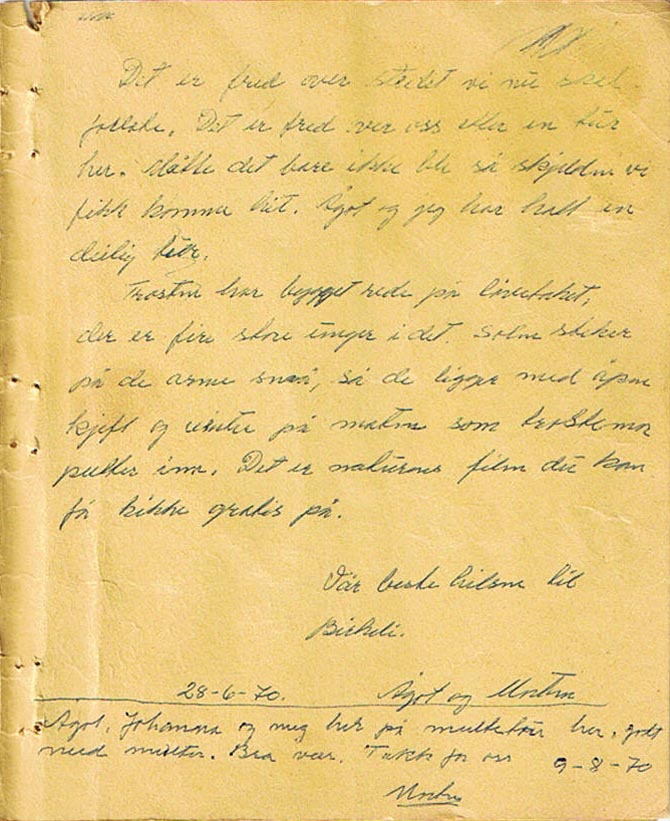 Det er fred over stedet vi nu skal
forlate. Det er fred over oss etter en tur
her. Måtte det bare ikke bli så skjelden vi
fikk komme hit. Ågot og jeg har hatt en
deilig tur.
Trosten har bygget rede på låvetaket,
der er fire store unger i det. Solen steker
på de arme små, så de ligger med åpen
kjeft og venter på maten som trostemor
putter inn. Det er naturens film du kan
få kikke gratis på.
Vår beste hilsen til
Birkeli.
28-6-70. Ågot og Morten
Ågot, Johanna og meg her på multetur her, godt
med multer. Bra vær. Takk for oss 9-8-70
Morten